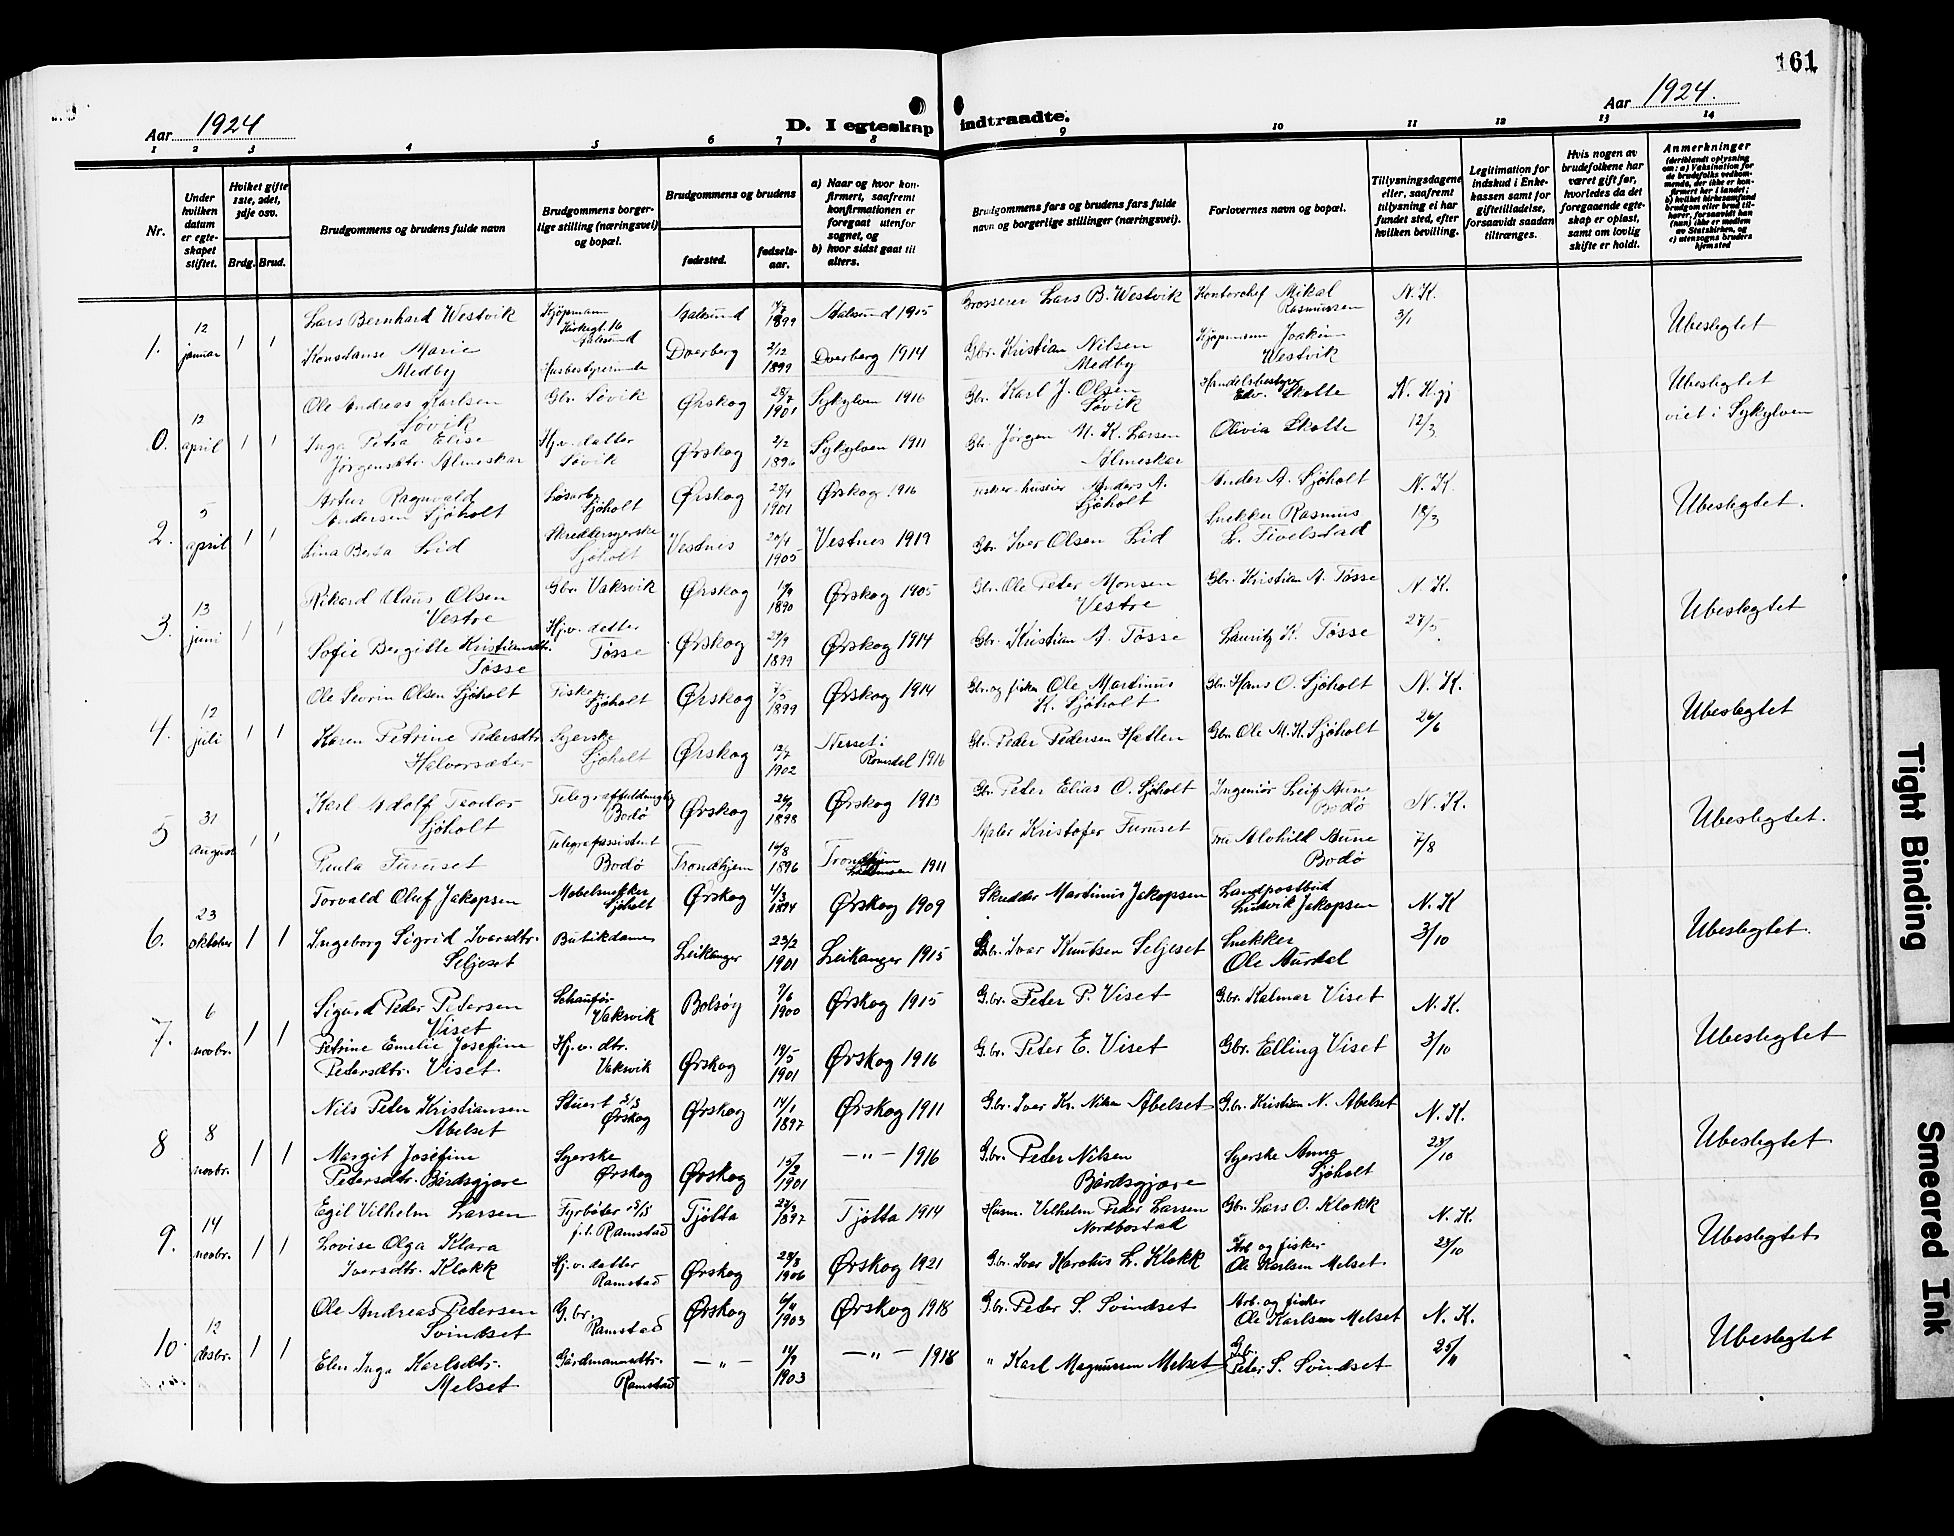 161
Aar 1924
D. I egteskap indtraadte.
Aar 1924.
1 2 3 4 5 6 7 8 9 10 11 12 13 14
Nr.
Under hvilken datum er egteskapet stiftet.
Hvilket gifte 1ste, 2det, 3dje osv.
Brdg. Brud.
Brudgommens og brudens fulde navn
Brudgommens borgerlige stilling (næringsvei) og bopæl.
Brudgommens og brudens
fødested.
fødselsaar.
a) Naar og hvor konfirmert, saafremt konfirmationen er foregaat utenfor sognet, og
b) hvor sidst gaat til alters.
Brudgommens fars og brudens fars fulde navn og borgerlige stillinger (næringsvei).
Forlovernes navn og bopæl.
Tillysningsdagene eller, saafremt tillysning ei har fundet sted, efter hvilken bevilling.
Legitimation for indskud i Enkekassen samt for giftetilladelse, forsaavidt saadan tiltrænges.
Hvis nogen av brudefolkene har været gift før, hvorledes da det foregaaende egteskap er opløst, samt om lovlig skifte er holdt.
Anmerkninger
(deriblandt oplysning om: a) Vaksination for de brudefolks vedkommende, der ikke er konfirmert her i landet; b) hvilket kirkesamfund brudgom eller brud tilhører, forsaavidt han (hun) ikke er medlem av Statskirken, og c) utensogns bruders hjemsted
1. 12 januar 1 1
Lars Bernhard Westvik Kjøpmann Kirkegt. 16 Aalesund Aalesund 1899 Aalesund 1915 Grosserer Lars B. Westvik Kontorchef Mikal Rasmussen N. K. 3/1 Ubeslegtet
Konstanse Marie Medby Husbestyrerinde Dverberg 2/12 1899 Dverberg 1914 Gbr. Kristian Nilsen Medby Kjøpmann Joakim Westvik
0. 12 april 1 1
Ole Andreas Karlsen Søvik Gbr. Søvik Ørskog 1901 Sykylven 1916 Gbr. Karl J. Olsen Søvik Handelsbestyrer Edv. Skotte N. K. gj 12/3 Ubeslegtet viet i Sykylven
Inga Petra Elise Jørgensdtr. Almeskar Hj.v. datter Søvik Ørskog 2/2 1896 Sykylven 1911 Gbr. Jørgen N. K. Larsen Almeskar Olivia Skotte
2. 5 april 1 1
Artur Ragnvald Andersen Sjøholt Løsarb. Sjøholt Ørskog 1901 Ørskog 1916 Fisker-huseier Anders A. Sjøholt Anders A. Sjøholt N. K. 18/3 Ubeslegtet.
Lina Berta Lid Skreddersyerske Sjøholt Vestnes 1905 Vestnes 1919 Gbr. Iver Olsen Lid Snekker Rasmus L. Tivelstad
3. 13 juni 1 1
Rikard Claus Olsen Vestre Gbr. Vaksvik Ørskog 1/9 1890 Ørskog 1905 Gbr. Ole Peter Monsen Vestre Gbr. Kristian A. Tøsse N. K. 27/5. Ubeslegtet
Sofie Bergitte Kristiansdtr. Tøsse Hj.v. datter Tøsse Ørskog 1899 Ørskog 1914 Gbr. Kristian A. Tøsse Lauritz K. Tøsse
4. 12 juli 1 1
Ole Severin Olsen Sjøholt Fisker Sjøholt Ørskog 1899 Ørskog 1914 Gbr. og fisker Ole Martinus K. Sjøholt Gbr. Hans O. Sjøholt N. K. 26/6 Ubeslegtet
Karen Petrine Pedersdtr. Halvorsæter Syerske Sjøholt Ørskog 12/7 1902 Nesset i Romsdal 1916 Gbr. Peder Pedersen Hatlen Gbr. Ole M. K. Sjøholt
5 31 august 1 1
Karl Adolf Teodor Sjøholt Telegraffuldmægtig Bodø Ørskog 1898 Ørskog 1913 Gbr. Peder Elias O. Sjøholt Ingeniør Leif Aune Bodø N. K. 7/8 Ubeslegtet.
Paula Furuset Telegrafassistent Bodø Trondhjem 16/8 1896 Trondhjem 1911 Maler Kristofer Furuset Fru Alvhild Aune Bodø
6. 23 oktober 1 1
Torvald Oluf Jakopsen Møbelsnekker Sjøholt Ørskog 4/3 1894 Ørskog 1909 Skredder Martinus Jakopsen Landpostbud Ludvik Jakopsen N. K 3/10 Ubeslegtet.
Ingeborg Sigrid Ivarsdtr. Seljeset Butikdame Leikanger 23/2 1901 Leikanger 1915 Gbr. Ivar Knutsen Seljeset Snekker Ole Aurdal
7. 6 novbr. 1 1
Sigurd Peder Pedersen Viset Schaufør Vaksvik Bolsøy 7/6 1900 Ørskog 1915 G.br. Peder P. Viset G.br. Kalmar Viset N. K. 3/10 Ubeslegtet
Petrine Emelie Josefine Pedersdtr. Viset. Hj.v. dtr. Vaksvik Ørskog 19/5 1901 Ørskog 1916 G.br. Peter E. Viset Gbr. Elling Viset
8 8 novbr. 1 1
Nils Peter Kristiansen Abelset Stuert Ørskog Ørskog 14/1 1897 Ørskog 1911 G.br. Ivar Kr. Abelset G.br. Kristian N. Abelset N. K. 23/10 Ubeslegtet.
Margit Josefine Pedersdtr. Bårdsgjære Syerske Ørskog Ørskog 1901 —"— 1916 G.br. Peder Nilsen Bårdsgjære Syerske Anna Sjøholt
9. 14 novbr. 1 1
Egil Vilhelm Larsen Fyrbøter f.t. Ramstad Tjøtta 1897 Tjøtta 1914 Husm. Vilhelm Peder Larsen Nordbostad Gbr. Lars O. Klokk N. K. 23/10 Ubeslegtet
Lovise Olga Klara Iversdtr. Klokk Hj.v. datter Ramstad Ørskog 28/8 1906 Ørskog 1921 G.br. Ivar Karolus L. Klokk Arb og fisker Ole Karlsen Melset.
10. 12 desbr. 1 1
Ole Andreas Pedersen Svindset G.br. Ramstad Ørskog 6/11 1903 Ørskog 1918 G.br. Peder S. Svindset Arb. og fisker Ole Karlsen Melset N. K. 25/11 Ubeslegtet
Elen Inga Karlsdtr. Melset Gårdmannsdtr. Ramstad —"— 14/9 1903 —"— 1918 " Karl Magnussen Melset G.br. Peter S. Svindset
Tight Binding
Smeared Ink